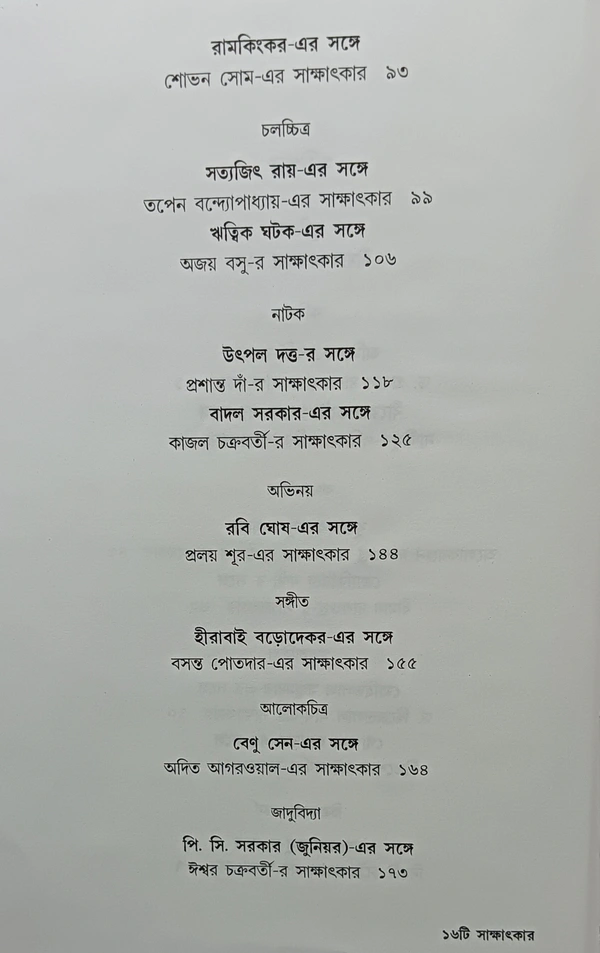 রামকিংকর-এর সঙ্গে
শোভন সোম-এর সাক্ষাৎকার ৯৩
চলচ্চিত্র
সত্যজিৎ রায়-এর সঙ্গে
তপেন বন্দ্যোপাধ্যায়-এর সাক্ষাৎকার ৯৯
ঋত্বিক ঘটক-এর সঙ্গে
অজয় বসু-র সাক্ষাৎকার ১০৬
নাটক
উৎপল দত্ত-র সঙ্গে
প্রশান্ত দাঁ-র সাক্ষাৎকার ১১৮
বাদল সরকার-এর সঙ্গে
কাজল চক্রবর্তী-র সাক্ষাৎকার ১২৫
অভিনয়
রবি ঘোষ-এর সঙ্গে
প্রলয় শূর-এর সাক্ষাৎকার ১৪৪
সঙ্গীত
হীরাবাই বড়োদেকর-এর সঙ্গে
বসন্ত পোতদার-এর সাক্ষাৎকার ১৫৫
আলোকচিত্র
বেণু সেন-এর সঙ্গে
অদিত আগরওয়াল-এর সাক্ষাৎকার ১৬৪
জাদুবিদ্যা
পি. সি. সরকার (জুনিয়র)-এর সঙ্গে
ঈশ্বর চক্রবর্তী-র সাক্ষাৎকার ১৭৩
১৬টি সাক্ষাৎকার